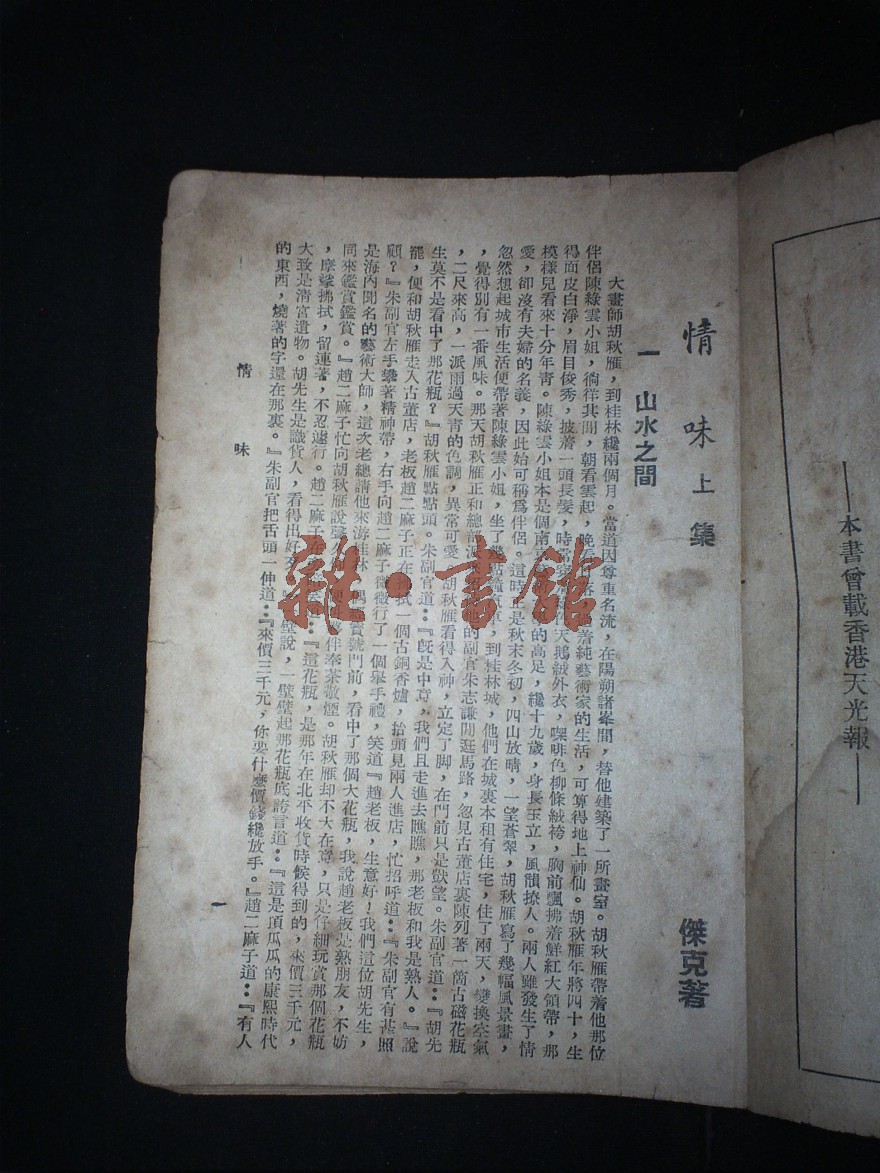 ——本書曾載香港天光報——
情味上集
傑克著
一 山水之間
大畫師胡秋雁，到桂林纔兩個月。當道因尊重名流，在陽朔諸峯間，替他建築了一所畫室。胡秋雁帶着他那位
伴侶陳綠雲小姐，徜徉其間，朝看雲起，晚看
着純藝術家的生活，可算得地上神仙。胡秋雁年將四十，生
得面皮白淨，眉目俊秀，披着一頭長髮，時常
天鵝絨外衣，啡色柳條絨袴，胸前飄拂着鮮紅大領帶，那
模樣兒看來十分年青。陳綠雲小姐本是個南
的高足，纔十九歲，身長玉立，風韻撩人。兩人雖發生了情
愛，卻沒有夫婦的名義，因此始可稱爲伴侶。這時正是秋末冬初，四山放晴，一望蒼翠，胡秋雁寫了幾幅風景畫，
忽然想起城市生活便帶著陳綠雲小姐，坐了
，到桂林城，他們在城裏本租有住宅，住了兩天，變換空氣
，覺得別有一番風味。那天胡秋雁正和總部
的副官朱志謙閒逛馬路，忽見古董店裏陳列著一箇古磁花瓶
，二尺來高，一派雨過天青的色調，異常可愛，胡秋雁看得入神，立定了脚，在門前只是獃望。朱副官道：『胡先
生莫不是看中了那花瓶？』胡秋雁點點頭。朱副官道：『旣是中意，我們且走進去瞧瞧，那老板和我是熟人。』說
罷，便和胡秋雁走入古董店，老板趙二麻子正在
拭一個古銅香爐，抬頭見兩人進店，忙招呼道：『朱副官有甚照
顧？』朱副官左手攀著精神帶，右手向趙二麻子微微行了一個舉手禮，笑道『趙老板，生意好！我們這位胡先生，
是海內聞名的藝術大師，這次老總請他來游桂林，偶
寶號門前，看中了那個大花瓶，我說趙老板是熟朋友，不妨
同來鑑賞鑑賞。』趙二麻子忙向胡秋雁說聲
伴奉茶敬煙。胡秋雁却不大在意，只是仔細玩賞那個花瓶
，摩挲拂拭，留連著，不忍遽行。趙二麻子在
：『這花瓶，是那年在北平收貨時候得到的，來價三千元，
大致是清宮遺物。胡先生是識貨人，看得出好歹
說，一壁豎起那花瓶底誇言道：『這是頂瓜瓜的康熙時代
的東西，燒著的字還在那裏。』朱副官把舌頭一伸道：『來價三千元，你要什麽價錢纔放手。』趙二麻子道：『有人
情味
一
雜·書館